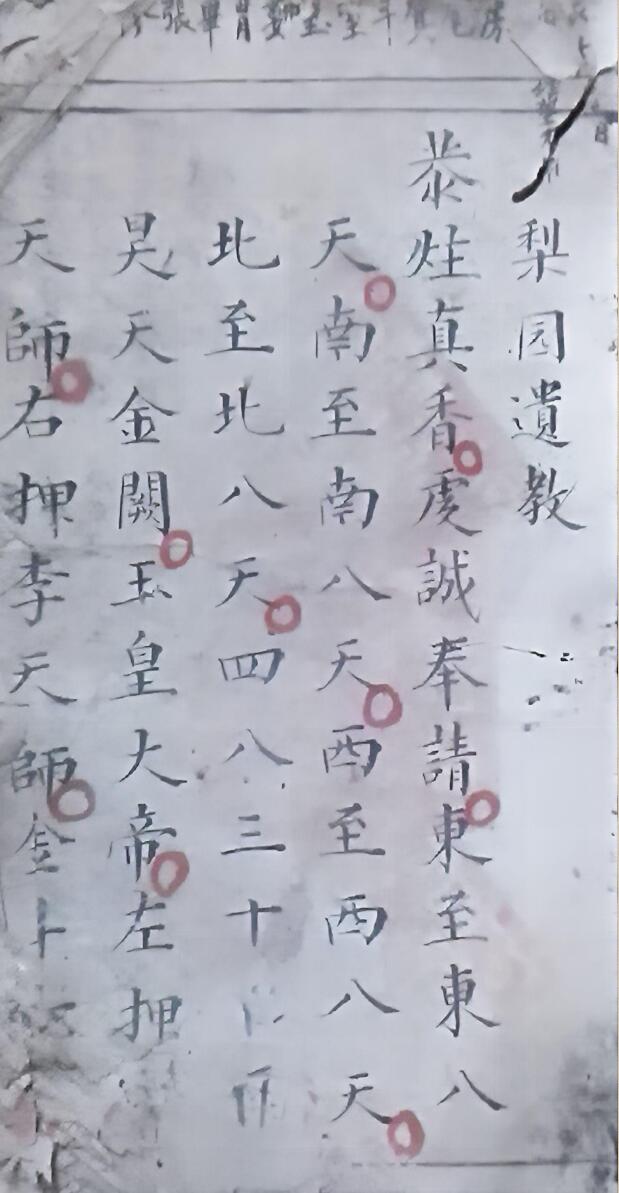 房箕斗室壁婁胃畢張
梨园遺教
恭炷真香虔誠奉請東至東八
天南至南八天西至西八天
北至北八天四八三十
昊天金闕玉皇大帝左押
天師右押李天師金